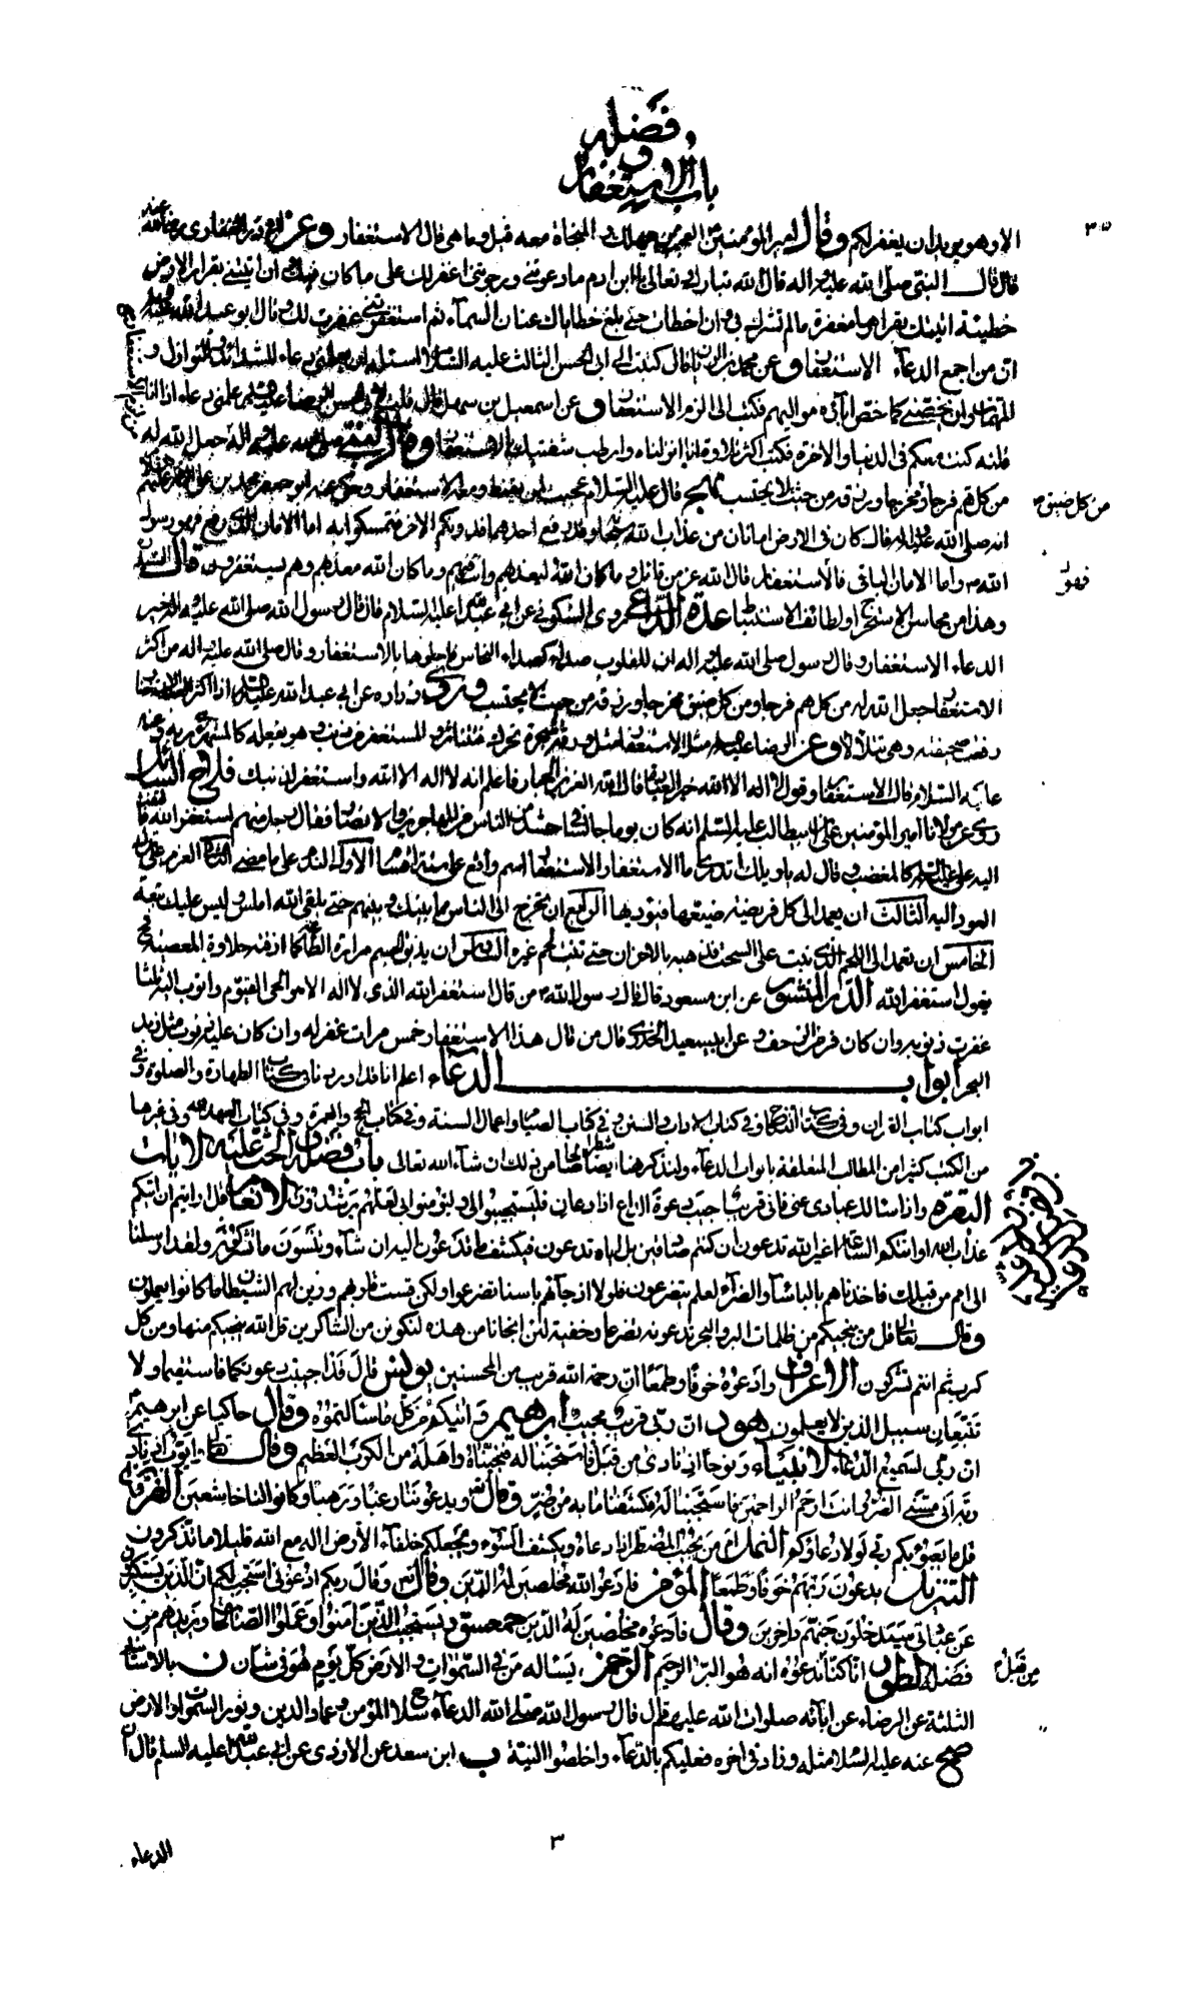 وفضله
باب الاستغفار
٣٥
الا وهو يريد ان يغفر لكم وقال امير المؤمنين العجب ممن يهلك والنجاة معه قيل وما هي قال الاستغفار وعن ابي ذر الغفاري رضي الله عنه
قال قال النبي صلى الله عليه واله قال الله تبارك وتعالى يا ابن ادم ما دعوتني ورجوتني اغفر لك على ما كان فيك وان اتيتني بقراب الارض
خطيئة اتيتك بقرابها مغفرة ما لم تشرك بي وان اخطات حتى بلغ خطاياك عنان السماء ثم استغفرتني غفرت لك وقال ابو عبد الله عليه
ان من اجمع الدعاء الاستغفار وعن محمد بن الريان قال كتبت الى ابي الحسن الثالث عليه السلام اسئله ان يعلمني دعاء للشدائد والنوازل و
المهمات وان يخصني كما خص اباؤه مواليهم فكتب الى الزم الاستغفار وعن اسمعيل بن سهل قال قلت لابي الحسن الرضا علمني دعاء اذا انا
قلته كنت معكم في الدنيا والاخرة فكتب اكثر تلاوة انا انزلناه وارطب شفتيك بالاستغفار وقال النبي صلى الله عليه واله جعل الله له
من كل هم فرجا ومخرجا ورزقه من حيث لا يحتسب نهج قال عليه السلام عجبت لمن يقنط ومعه الاستغفار وحكى عنه ابو جعفر محمد بن علي الباقر عليهم
من كل ضيق
انه صلى الله عليه واله قال كان في الارض امانان من عذاب الله سبحانه وقد رفع احدهما فدونكم الاخر فتمسكوا به اما الامان الذي رفع فهو رسول
الله واما الامان الباقي فالاستغفار قال الله عز من قائل وما كان الله ليعذبهم وانت فيهم وما كان الله معذبهم وهم يستغفرون قال السيد
فهو
وهذا من محاسن الاستخراج ولطائف الاستنباط عدة الداعي روى السكوني عن ابي عبد الله عليه السلام قال قال رسول الله صلى الله عليه واله خير
الدعاء الاستغفار وقال رسول صلى الله عليه واله ان للقلوب صداء كصداء النحاس فاجلوها بالاستغفار وقال صلى الله عليه واله من اكثر
الاستغفار جعل الله له من كل هم فرجا ومن كل ضيق مخرجا ورزقه من حيث لا يحتسب وروى زرارة عن ابي عبد الله عليه السلام اذا اكثر العبد الاستغفار
رفعت صحيفته وهي تتلألأ وعن الرضا عليه السلام مثل الاستغفار مثل ورقة شجرة تحرك فتناثر والمستغفر من ذنب وهو يفعله كالمستهزئ بربه وعنه
عليه السلام قال الاستغفار وقول لا اله الا الله خير العبادة قال الله العزيز الجبار فاعلم انه لا اله الا الله واستغفر لذنبك فلاح السائل
روى عن مولانا امير المؤمنين علي بن ابيطالب عليه السلم انه كان يوما جالسا في حشد من الناس من المهاجرين والانصار فقال رجل منهم استغفر الله
اليه علي عليه السلم كالمغضب وقال له يا ويلك اتدري ما الاستغفار والاستغفار اسم واقع على ستة اقسام الاول الندم على ما مضى الثاني العزم على ترك
العود اليه الثالث ان يعمد الى كل فريضة ضيعتها فتؤديها الرابع ان تخرج الى الناس مما بينك وبينهم حتى يلقى الله املس وليس عليك تبعة
الخامس ان تعمد الى اللحم الذي نبت على السحت فتذهبه بالاحزان حتى تنبت لحم غيره السادس ان يذيق الجسم مرارة الطاعة كما اذقته حلاوة المعصية
يقول استغفر الله الدر المنثور عن ابن مسعود قال قال رسول الله من قال استغفر الله الذي لا اله الا هو الحي القيوم واتوب اليه ثلثا
غفرت ذنوبه وان كان فر من الزحف وعن ابي سعيد الخدري قال من قال هذا الاستغفار خمس مرات غفر له وان كان عليه ذنوب مثل زبد
البحر ابواب الدعاء اعلم انا قد اوردنا في كتاب الطهارة والصلوة وفي
ابواب كتاب القران وفي كتاب النكاح وفي كتاب الاداب والسنن وفي كتاب الصيام واعمال السنة وفي كتاب الحج والعمرة وفي كتاب العهد وفي غيرها
من الكتب كثيرا من المطالب المتعلقة بابواب الدعاء ولنذكر هنا ايضا شطرا صالحا من ذلك ان شاء الله تعالى باب فضله والحث عليه الايات
البقرة واذا سالك عبادي عني فاني قريب اجيب دعوة الداع اذا دعان فليستجيبوا لي وليؤمنوا بي لعلهم يرشدون الانعام قل ارايتم ان اتيكم
عذاب الله او اتتكم الساعة اغير الله تدعون ان كنتم صادقين بل اياه تدعون فيكشف ما تدعون اليه ان شاء وتنسون ما تشركون ولقد ارسلنا
الى امم من قبلك فاخذناهم بالباساء والضراء لعلهم يتضرعون فلولا اذ جاءهم باسنا تضرعوا ولكن قست قلوبهم وزين لهم الشيطان ما كانوا يعملون
وقال تعالى قل من ينجيكم من ظلمات البر والبحر تدعونه تضرعا وخفية لئن انجانا من هذه لنكونن من الشاكرين قل الله ينجيكم منها ومن كل
كرب ثم انتم تشركون الاعراف وادعوه خوفا وطمعا ان رحمة الله قريب من المحسنين يونس قال قد اجيبت دعوتكما فاستقيما ولا
تتبعان سبيل الذين لا يعلمون هود ان ربي قريب مجيب ابرهيم واتيكم من كل ما سالتموه وقال حاكيا عن ابرهيم
ان ربي لسميع الدعاء الانبياء ونوحا اذ نادى من قبل فاستجبنا له فنجيناه واهله من الكرب العظيم وقال تعالى وايوب اذ نادى
ربه اني مسني الضر وانت ارحم الراحمين فاستجبنا له فكشفنا ما به من ضر وقال ويدعوننا رغبا ورهبا وكانوا لنا خاشعين الفرقان
قل ما يعبؤ بكم ربي لولا دعاؤكم النمل امن يجيب المضطر اذا دعاه ويكشف السوء ويجعلكم خلفاء الارض اله مع الله قليلا ما تذكرون
التنزيل يدعون ربهم خوفا وطمعا المؤمن فادعوا الله مخلصين له الدين وقال وقال ربكم ادعوني استجب لكم ان الذين يستكبرون
عن عبادتي سيدخلون جهنم داخرين وقال فادعوه مخلصين له الدين حمعسق ويستجيب الذين امنوا وعملوا الصالحات ويزيدهم من
فضله الطور انا كنا ندعوه انه هو البر الرحيم الرحمن يسأله من في السموات والارض كل يوم هو في شأن ن بالاسانيد
من قبل
الثلثة عن الرضاء عن ابائه صلوات الله عليهم قال قال رسول الله صلى الله الدعاء سلاح المؤمن وعماد الدين ونور السموات والارض
صح عنه عليه السلام مثله وزاد في اخره فعليكم بالدعاء واخلصوا النية ب ابن سعد عن الازدي عن ابي عبد الله عليه السلم قال
٣
الدعاء